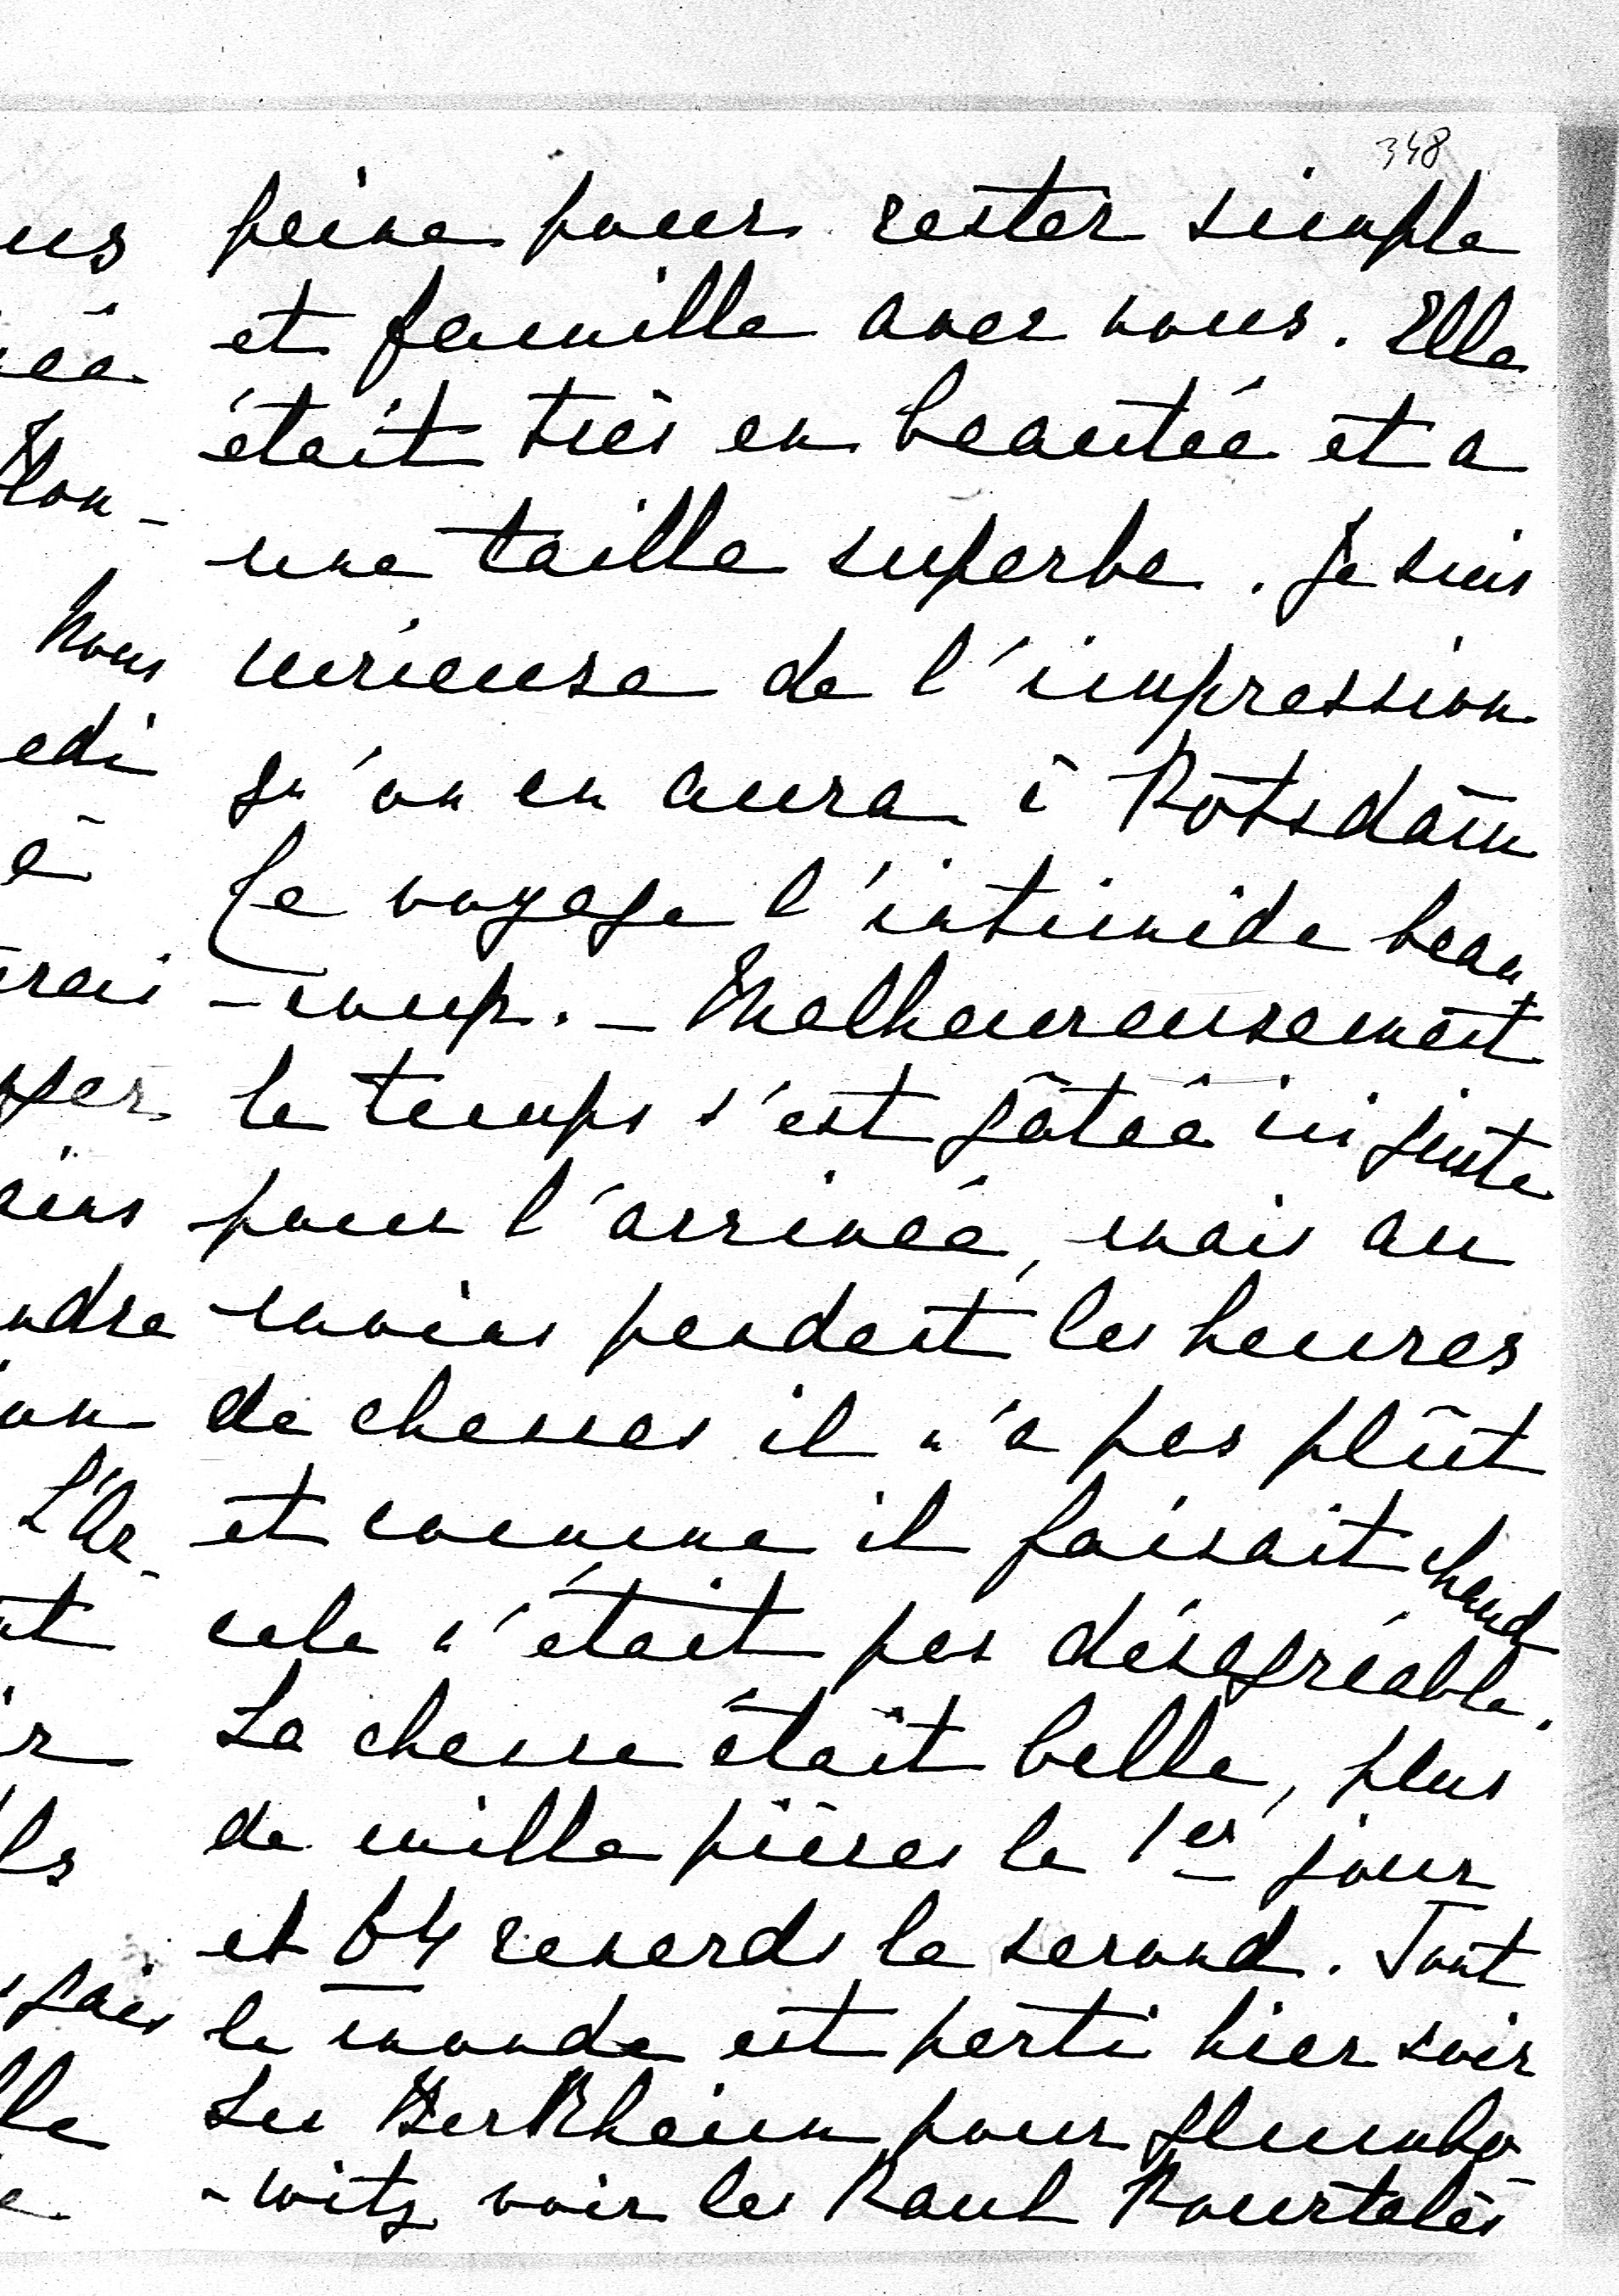 348
peine pour rester simple
et famille avec nous. Elle
était très en beautée et a
une taille superbe. Je suis
curieuse de l'impression
qu'on en aura à Potsdam
Ce voyage l'intimide beau
-coup. - Malheureusement
le temps s'est gâtée ici juste
pour l'arrivée, mais au
moins pendant les heures
de chasses il n'a pas plût
et comme il faisait chaud
cela n'était pas désagréable.
La chasse était belle, plus
de mille pièces le 1er jour
et 64 renards le second. Tout
le monde est parti hier soir
Les Berkheim pour
-witz voir les Raoul Pourtalès